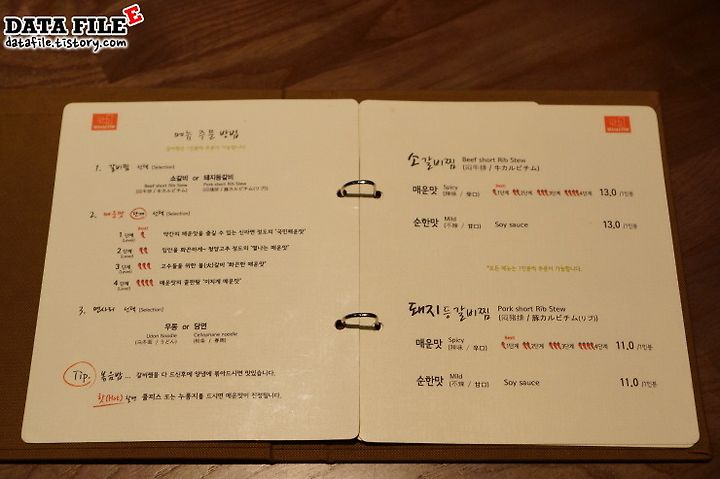 DATA FILE E
datafile.tistory.com
메뉴 주문 방법
1. 갈비찜 선택 (Selection)
소갈비 or 돼지등갈비
Beef short Rib Stew Pork short Rib Stew
2. 매운맛 선택 (Selection)
1 단계 (Level) 약간의 매운맛을 즐길 수 있는 신라면 정도의 '국민매운맛'
2 단계 (Level) 입안을 화끈하게~ 청양고추 정도의 '열나는 매운맛'
3 단계 (Level) 고수들을 위한 불(火)갈비 '화끈한 매운맛'
4 단계 (Level) 매운맛의 끝판왕 '미치게 매운맛'
3. 면사리 선택 (Selection)
우동 or 당면
Udon Noodle Cellophane noodle
Tip. 볶음밥... 갈비찜을 다 드신후에 양념에 볶아드시면 맛있습니다.
핫(Hot) 할땐 쿨피스 또는 누룽지를 드시면 매운맛이 진정됩니다.
소갈비찜 Beef short Rib Stew
(闷牛排 / 牛カルビチム)
매운맛 Spicy (辣味 / 辛口) Best! 1단계 2단계 3단계 4단계 13,0 /1인분
순한맛 Mild (不辣 / 甘口) Soy sauce 13,0 /1인분
*모든 메뉴는 1인분씩 주문이 가능합니다.
돼지등갈비찜 Pork short Rib Stew
(闷猪排 / 豚カルビチム(リブ))
매운맛 Spicy (辣味 / 辛口) Best! 1단계 2단계 3단계 4단계 11,0 /1인분
순한맛 Mild (不辣 / 甘口) Soy sauce 11,0 /1인분